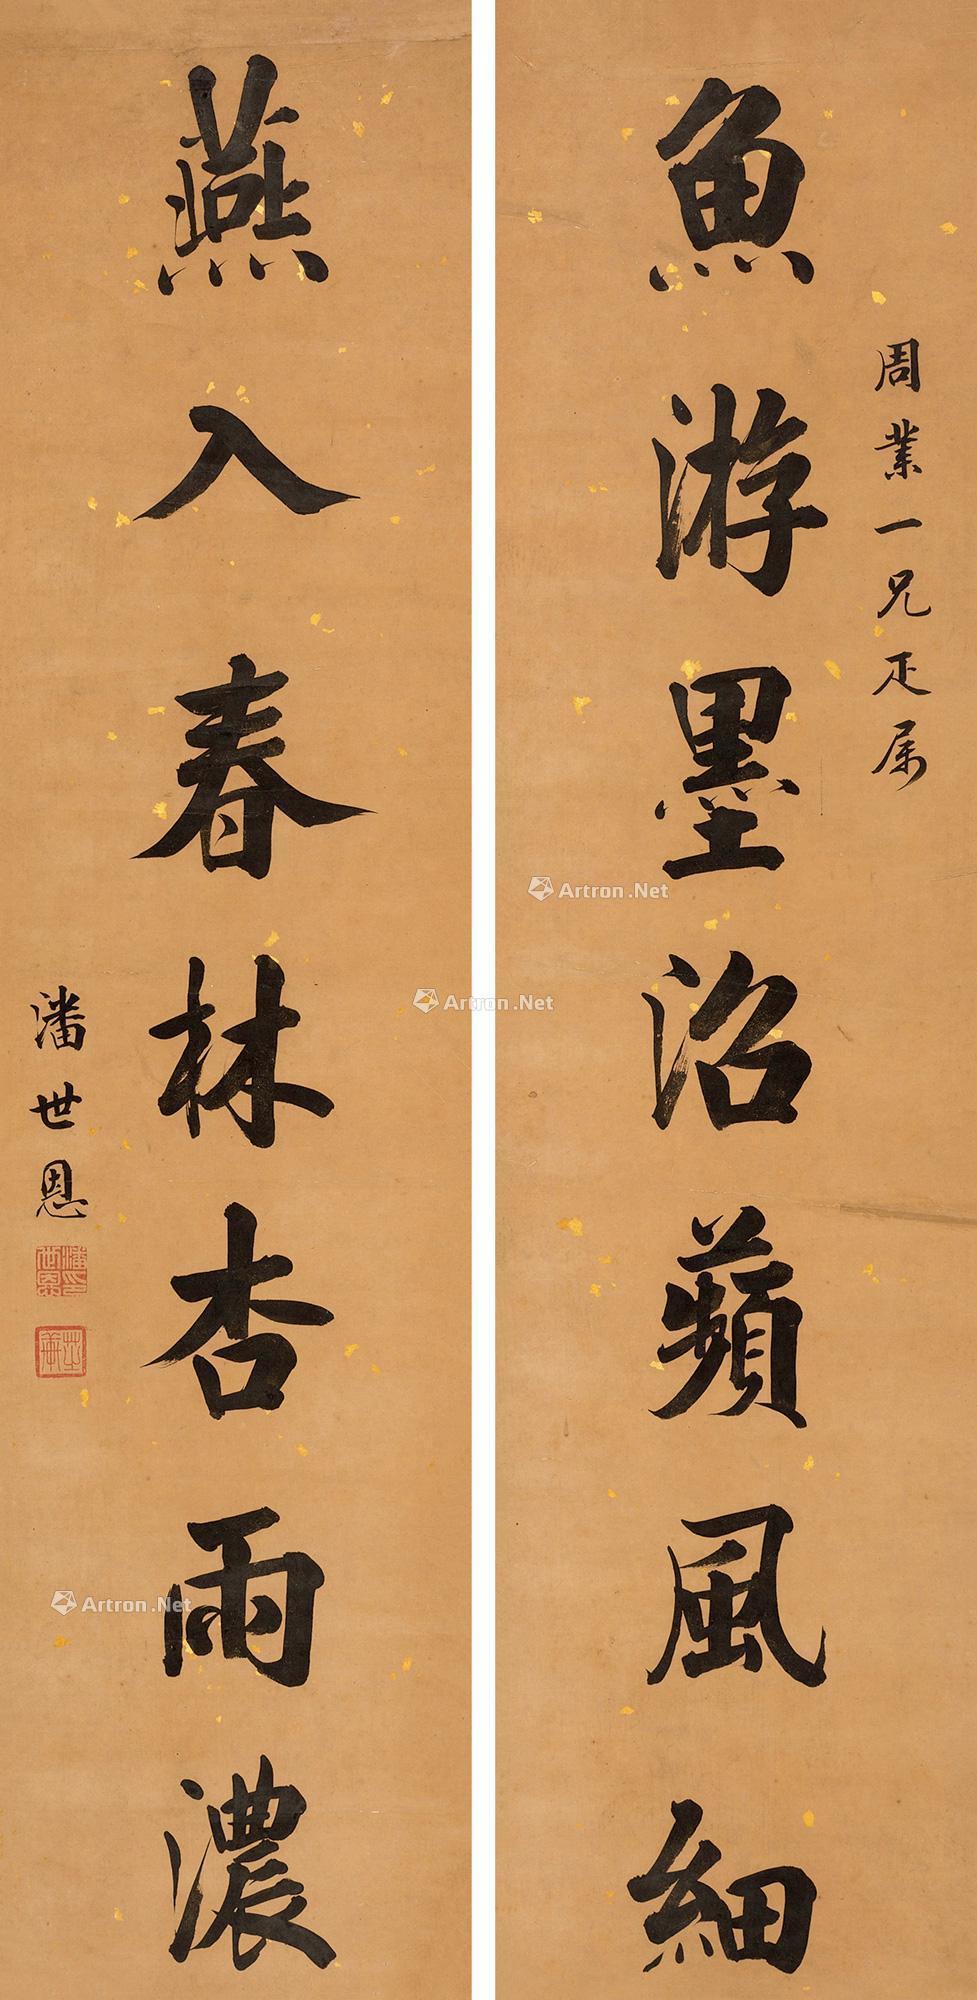 周業一兄疋属
魚游墨沼蘋風細
燕入春林杏雨濃
潘世恩
潘世恩印
芝軒
Artron.Net
Artron.Net
Artron.Net